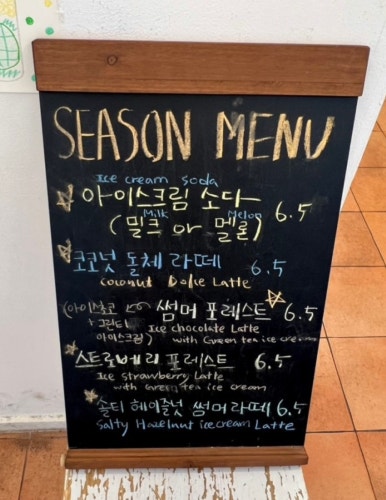 SEASON MENU
Ice cream soda
아이스크림 소다 6.5
Milk Melon
(밀크 or 멜론)
코코넛 돌체 라떼 6.5
coconut Dolce Latte
(아이스초코 썸머 포레스트 6.5
+ 그린티 Ice chocolate Latte
아이스크림) with Green tea ice cream
스트로베리 포레스트 6.5
Ice strawberry Latte
with Green tea ice cream
솔티 헤이즐넛 썸머라떼 6.5
Salty Hazelnut icecream Latte